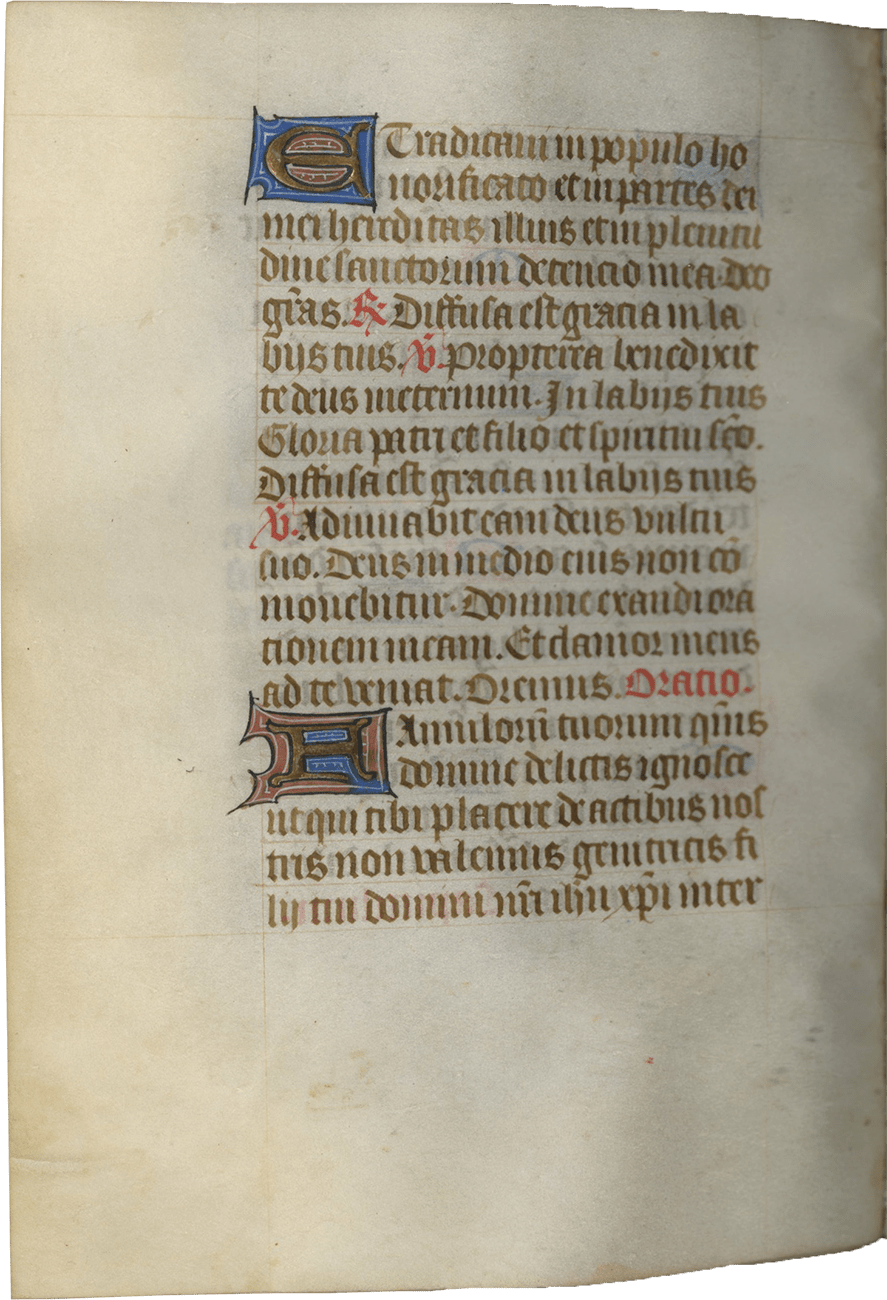 ETradicaui in populo ho
norificato et in partes dei
mei hereditas illius et in plenitu
dine sanctorum detencio mea. Deo
gr̄as. R̷ Diffusa est gracia in la
bijs tuis. V̷. Propterea benedixit
te deus in eternum. In labijs tuis
Gloria patri et filio et spiritui sc̄o.
Diffusa est gracia in labijs tuis
V̷. Adiuuabit eam deus vultu
suo. Deus in medio eius non cō
mouebitur. Domine exaudi ora
tionem meam. Et clamor meus
ad te veniat. Oremus. Oratio.
FAmulorū tuorum qm̄s
domine delictis ignosce
ut qui tibi placere de actibus nos
tris non valemus genitricis fi
lij tui domini nr̄i ih̄u xp̄i inter